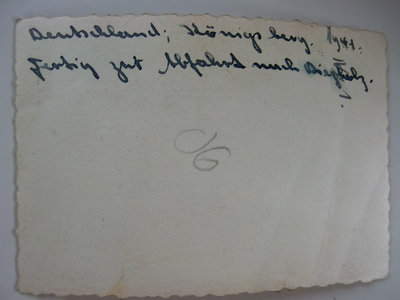 Deutschland, Königsberg. 1941.
Fertig zur Abfahrt nach